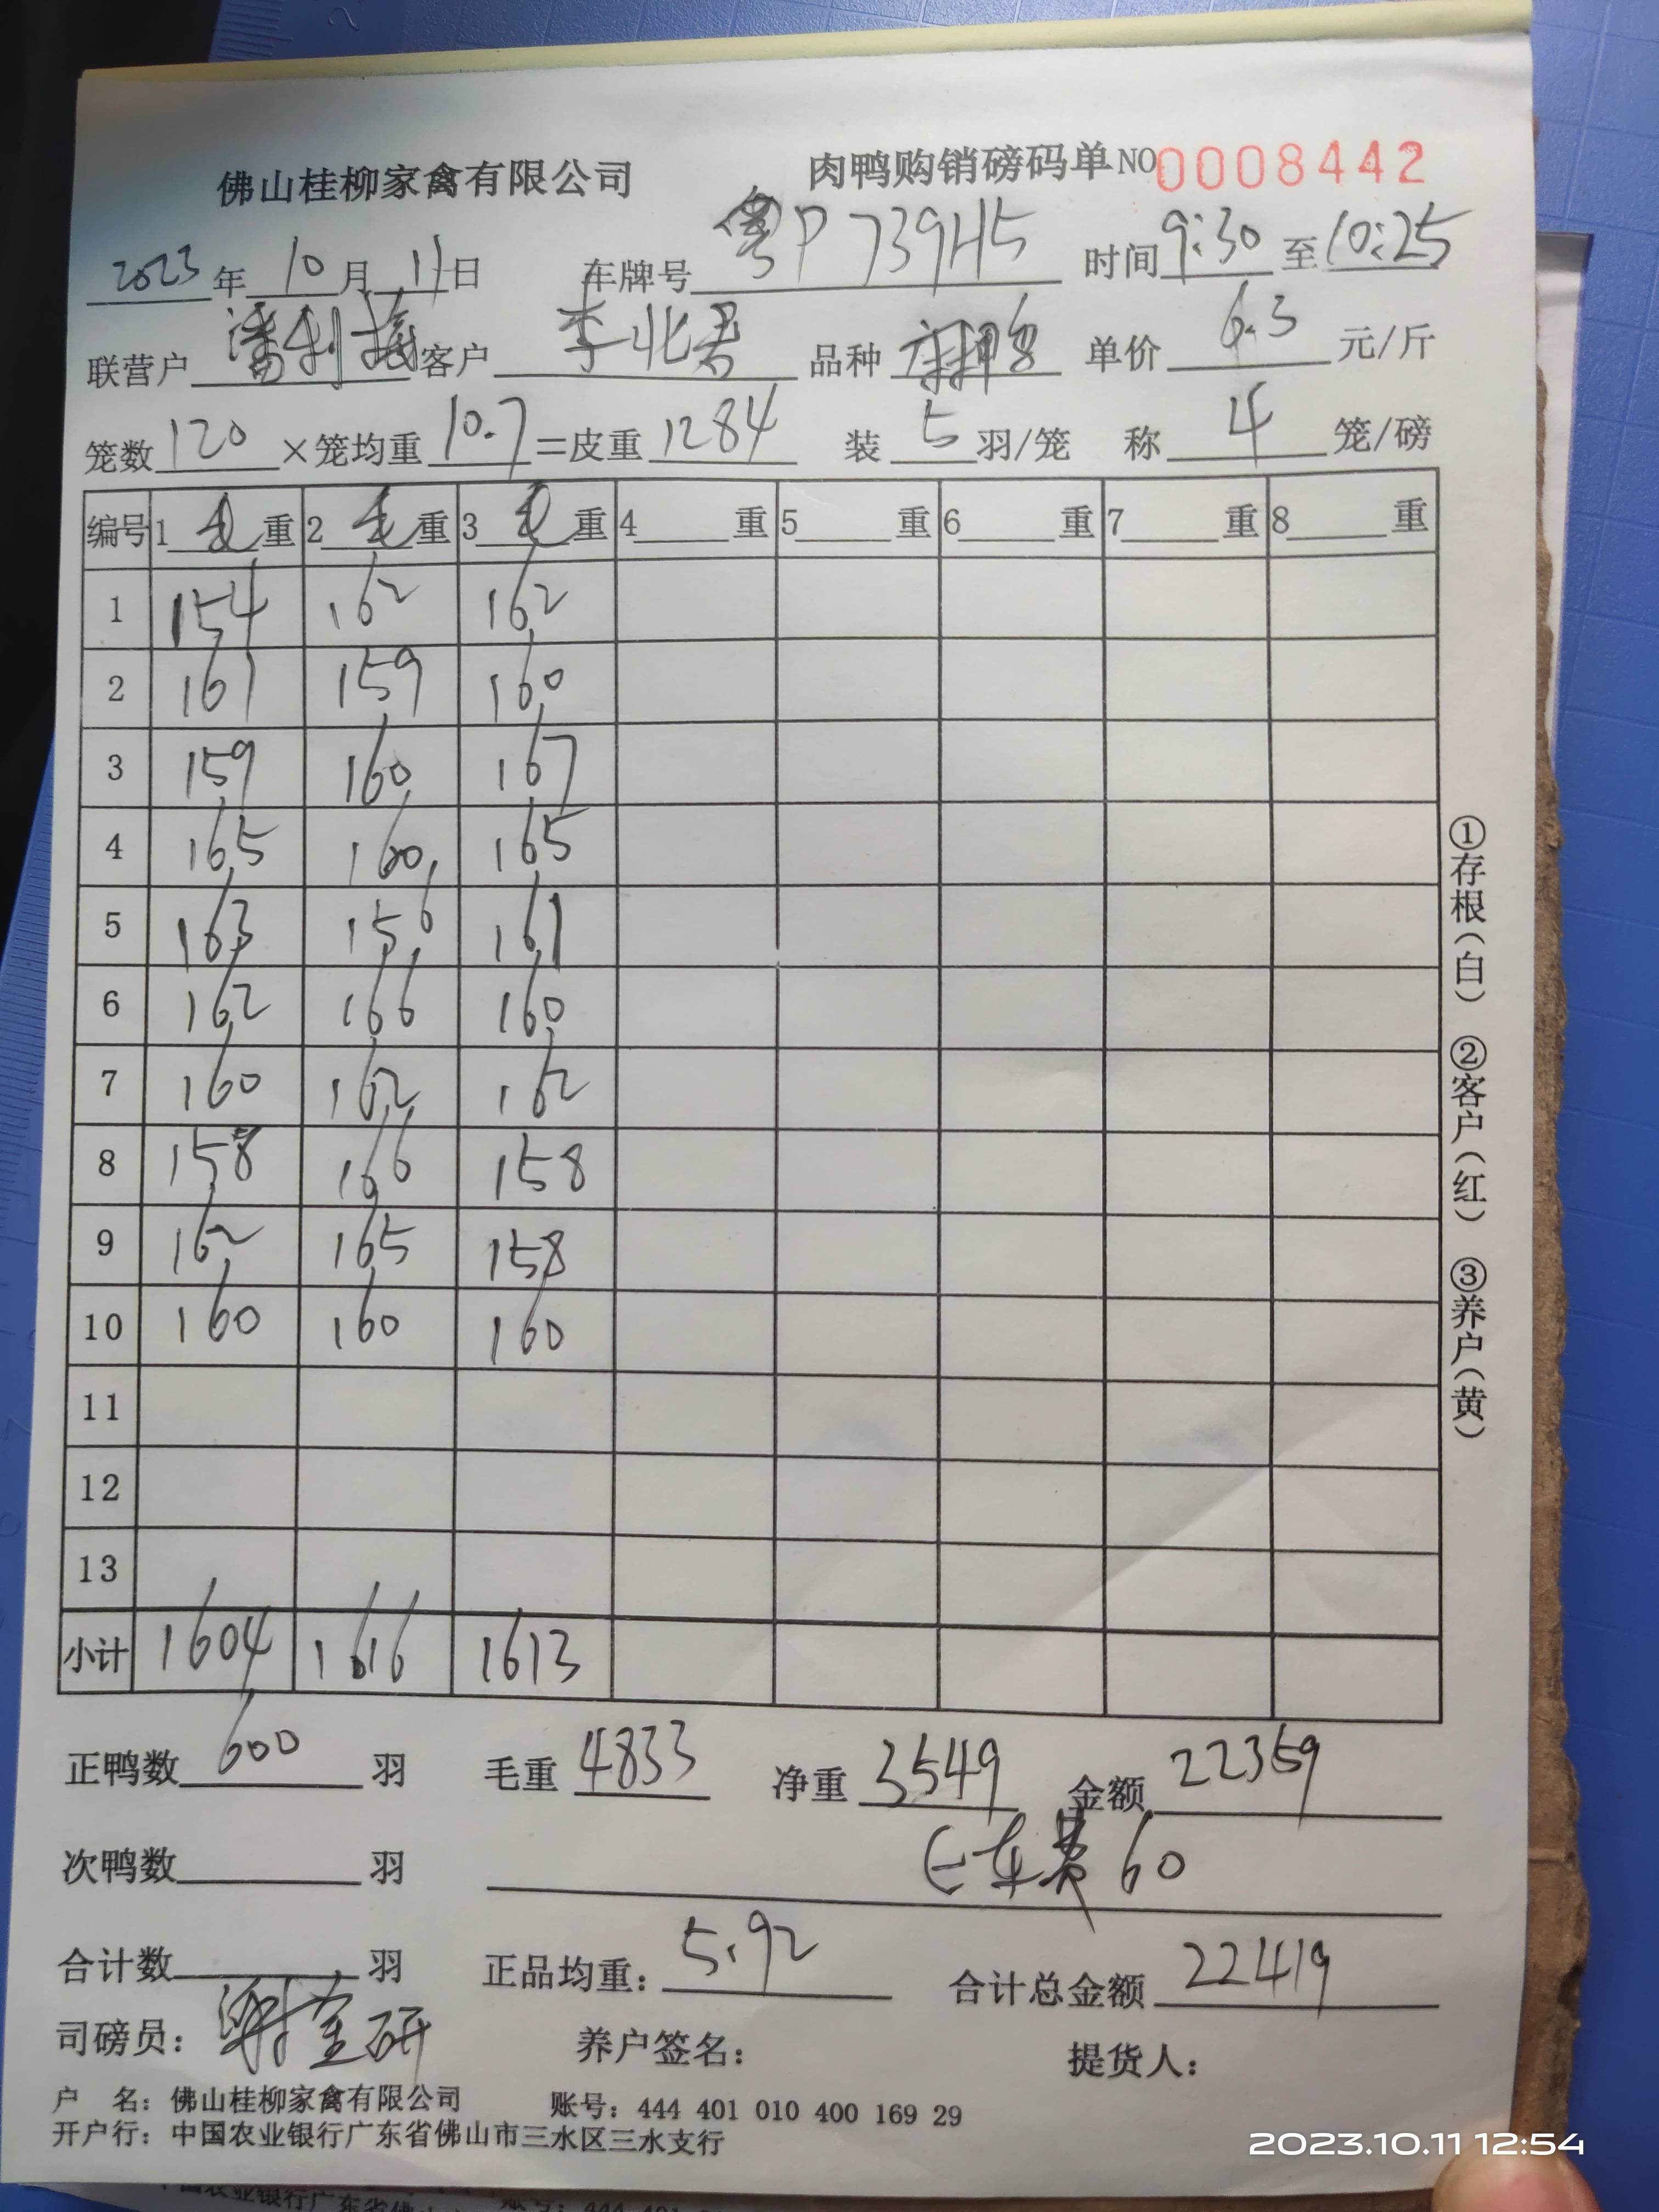 佛山桂柳家禽有限公司 肉鸭购销磅码单 NO 0008442
2023年10月11日 车牌号 粤P739H5 时间 9:30 至 10:25
联营户 潘利 客户 李北君 品种 麻鸭 单价 6.3 元/斤
笼数 120 ×笼均重 10.7 =皮重 1284 装 5 羽/笼 称 4 笼/磅
编号 1 毛 重 2 毛 重 3 毛 重 4 重 5 重 6 重 7 重 8 重
1 154 162 162
2 161 159 160
3 159 160 167
4 165 160 165
5 163 156 161
6 162 166 160
7 160 162 162
8 158 166 158
9 162 165 158
10 160 160 160
11
12
13
小计 1604 1616 1613
正鸭数 600 羽 毛重 4833 净重 3549 金额 22359
次鸭数 羽 车费 60
合计数 羽 正品均重: 5.92 合计总金额 22419
司磅员: 谢金研 养户签名: 提货人:
户 名: 佛山桂柳家禽有限公司 账号: 444 401 010 400 169 29
开户行: 中国农业银行广东省佛山市三水区三水支行
①存根(白) ②客户(红) ③养户(黄)
2023.10.11 12:54